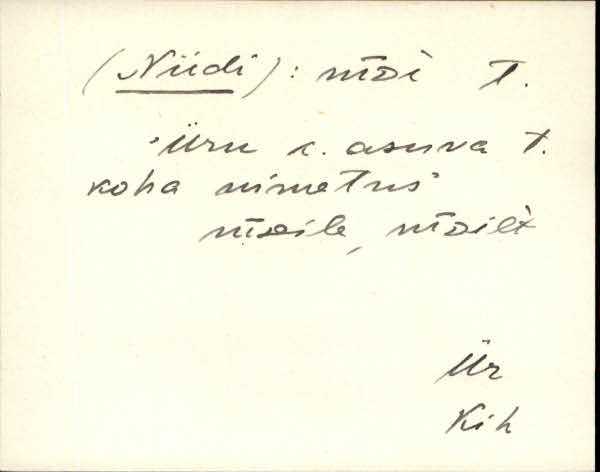 (Niidi): nīdi T.
"Üru k. asuva t.
koha nimetus"
Ür
Kih